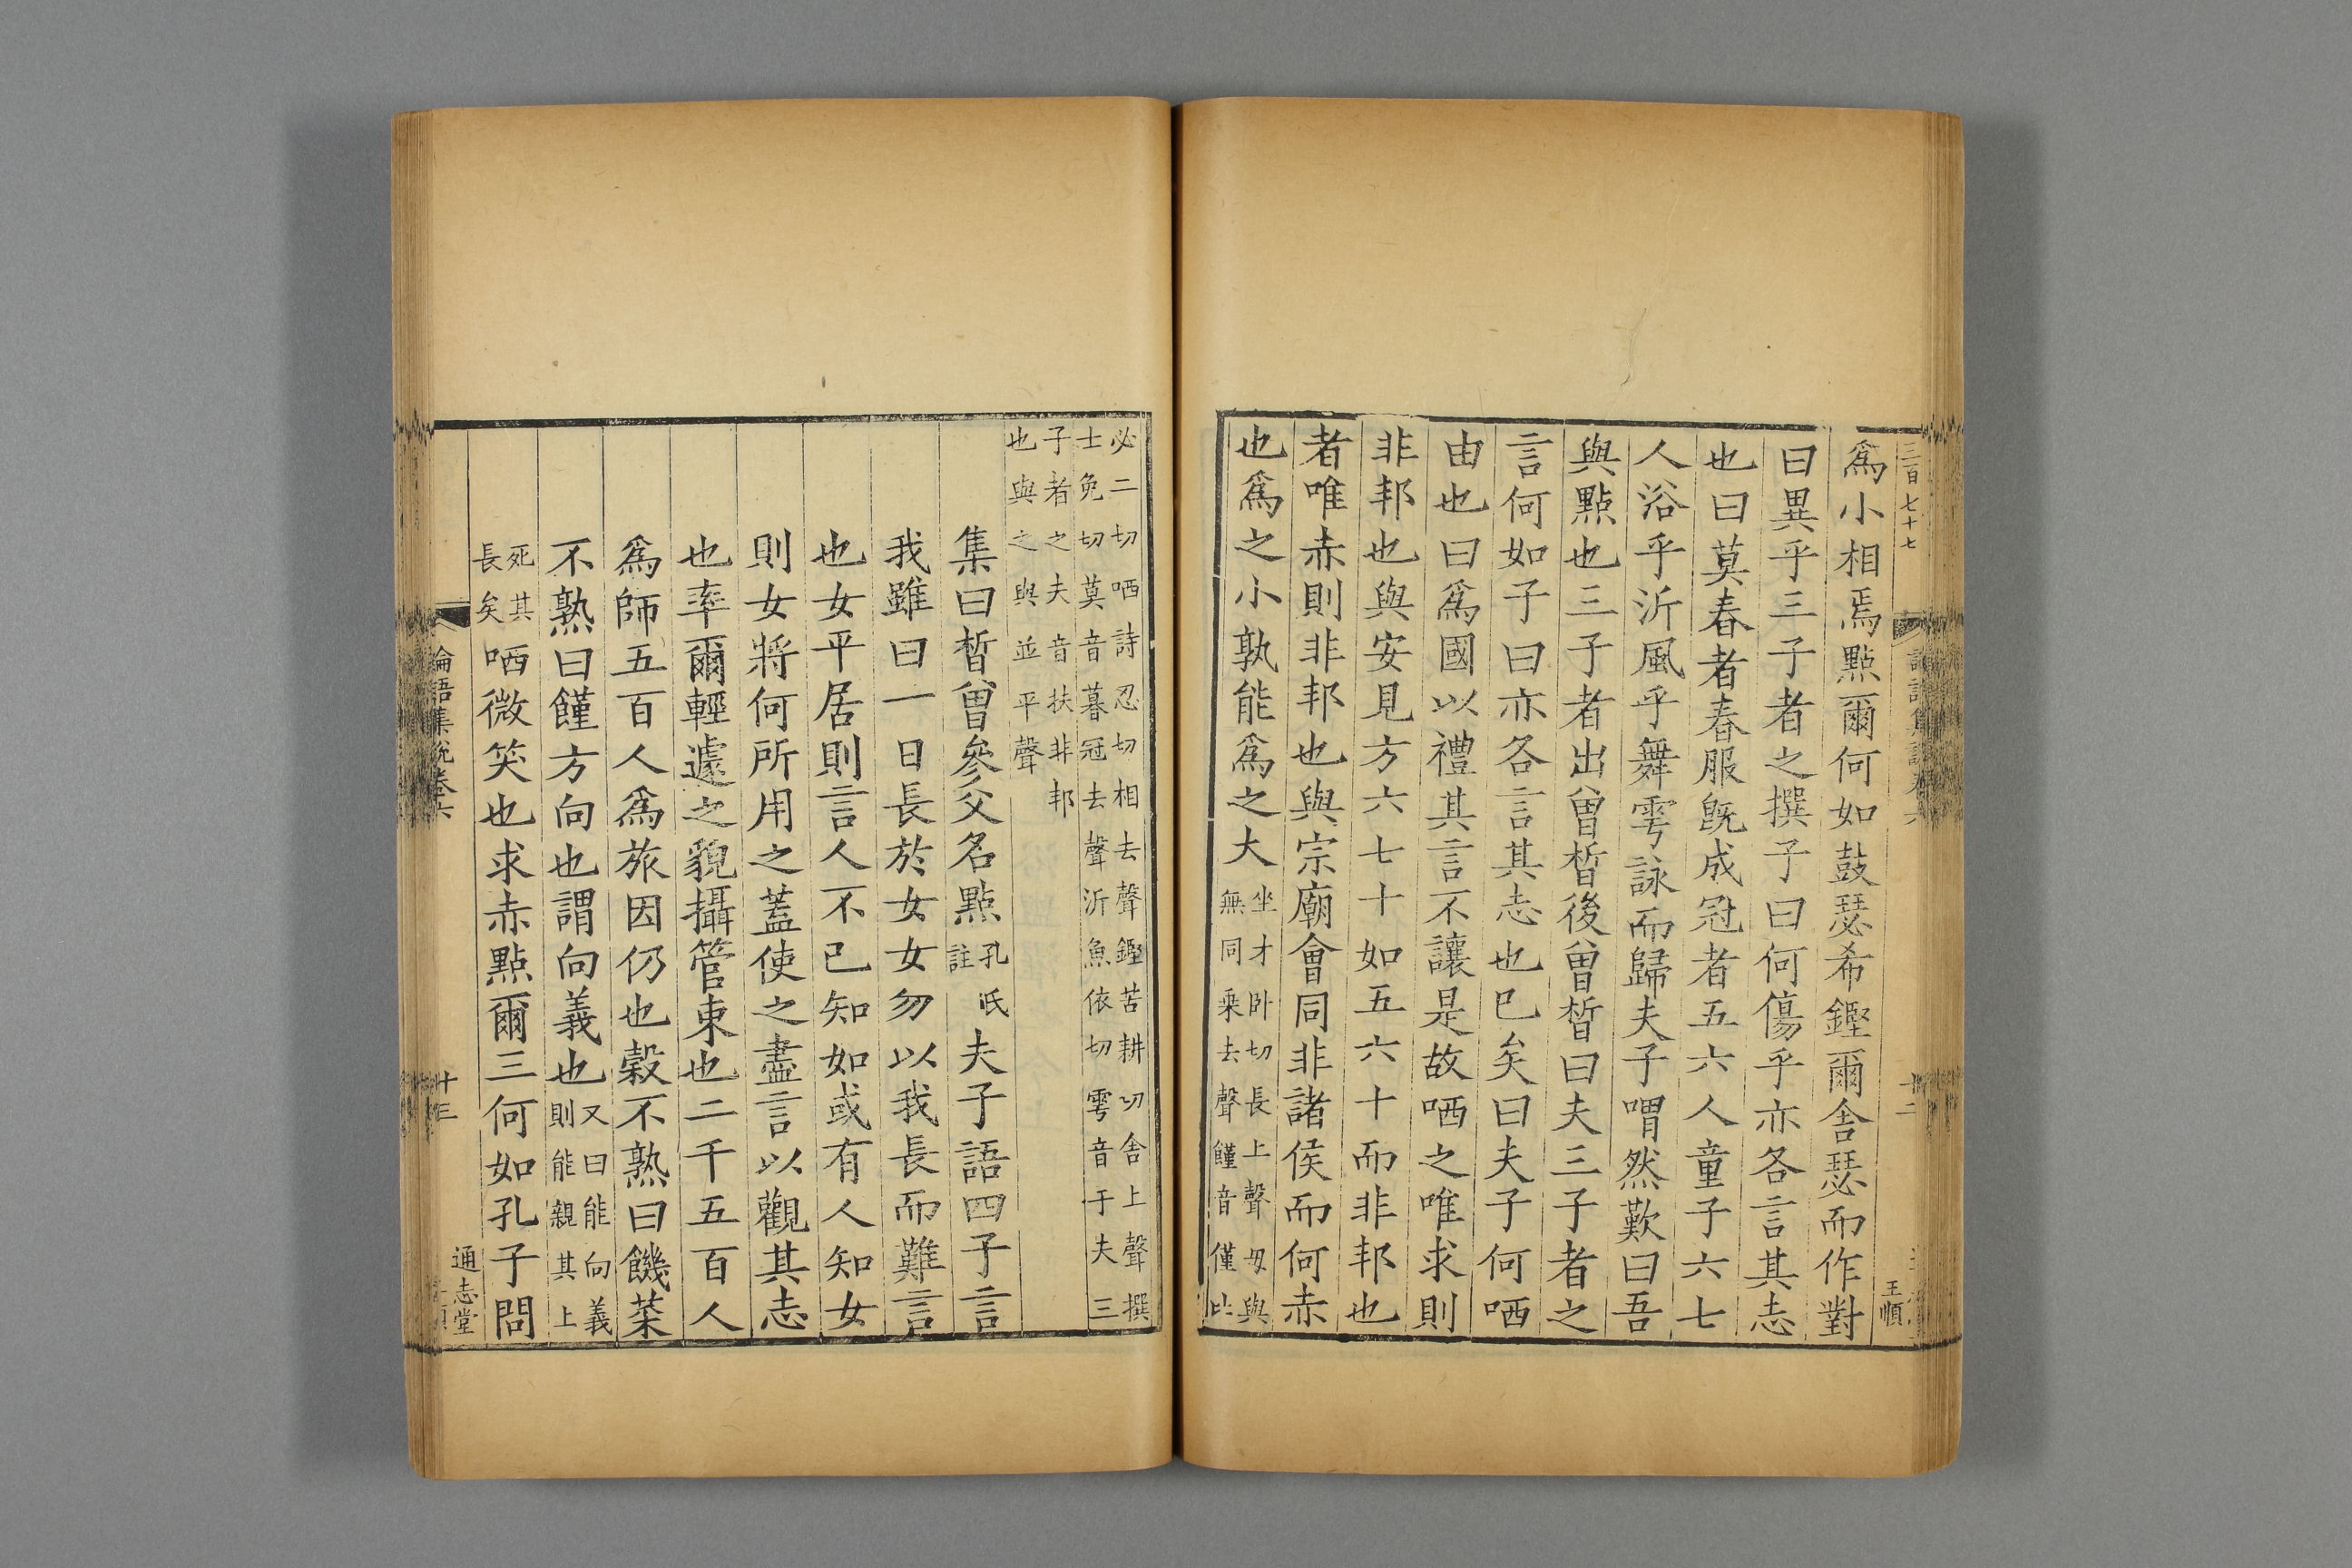 三百七十七
王順
爲小相焉點爾何如鼓瑟希鏗爾舍瑟而作對
曰異乎三子者之撰子曰何傷乎亦各言其志
也曰莫春者春服旣成冠者五六人童子六七
人浴乎沂風乎舞雩詠而歸夫子喟然歎曰吾
與點也三子者出曾晳後曾晳曰夫三子者之
言何如子曰亦各言其志也已矣曰夫子何哂
由也曰爲國以禮其言不讓是故哂之唯求則
非邦也與安見方六七十如五六十而非邦也
者唯赤則非邦也與宗廟會同非諸侯而何赤
也爲之小孰能爲之大
坐才卧切長上聲毋與
無同乘去聲饉音僅比
必二切哂詩忍切相去聲鏗苦耕切舍上聲撰
士免切莫音暮冠去聲沂魚依切雩音于夫三
子者之夫音扶非邦
也與之與並平聲
集曰晳曾參父名點
孔氏
註
夫子語四子言
我雖曰一日長於女女勿以我長而難言
也女平居則言人不已知如或有人知女
則女將何所用之蓋使之盡言以觀其志
也率爾輕遽之貌攝管束也二千五百人
爲師五百人爲旅因仍也穀不熟曰饑菜
不熟曰饉方向也謂向義也
又曰能向義
則能親其上
死其
長矣
哂微笑也求赤點爾三何如孔子問
論語集說卷六
十三
通志堂